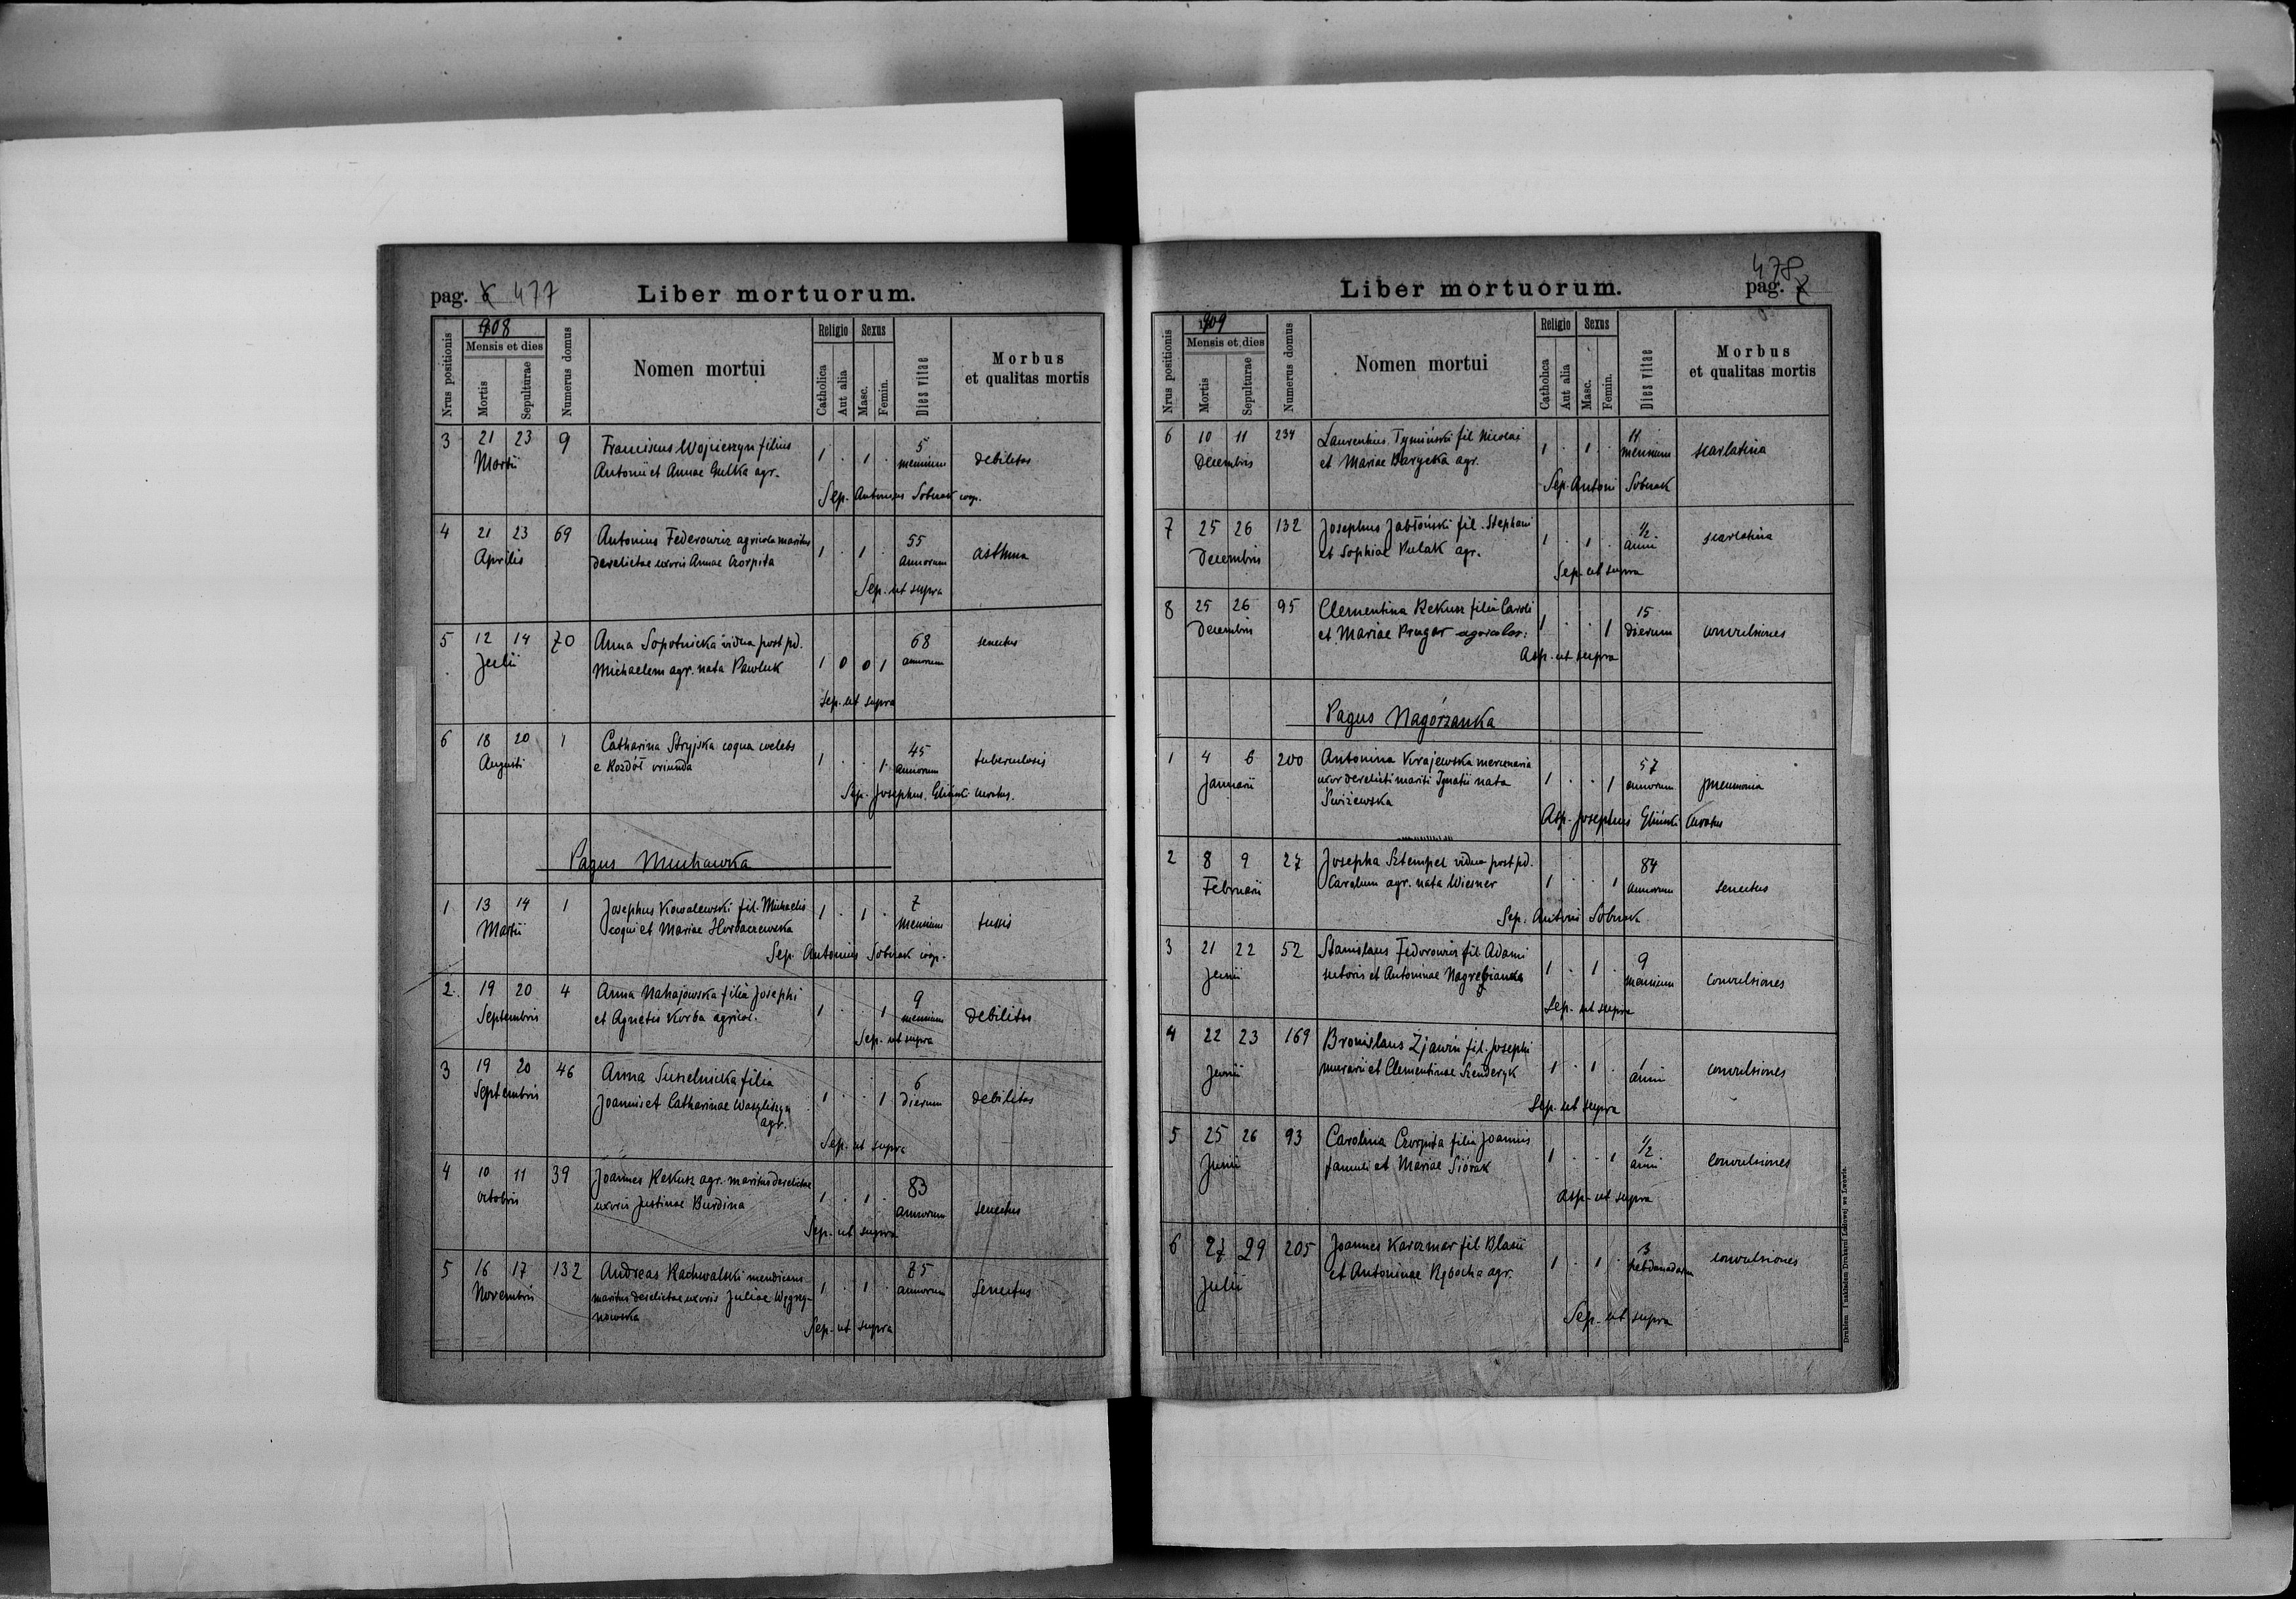 pag. 6 477 Liber mortuorum.
Nrus positionis
1908
Mensis et dies
Mortis
Sepulturae
Numerus domus
Nomen mortui
Religio
Catholica
Aut alia
Sexus
Masc.
Femin.
Dies vitae
Morbus
et qualitas mortis
3 21 23 9 Franciscus Wojcieszyn filius 1 . 1 . 5
Martii Antonii et Annae Gulka agr. mensium debilitas
Sep. Antonius Sobczak coop.
4 21 23 69 Antonius Federowicz agricola maritus 1 . 1 . 55
Aprilis derelictae uxoris Annae Czorpita annorum asthma
Sep. ut supra
5 12 14 70 Anna Sopotnicka vidua post pd. 68 senectus
Julii Michaelem agr. nata Pawluk 1 0 0 1 annorum
Sep. ut supra
6 18 20 1 Catharina Stryjska coqua coelebs 1 . . 1 45
Augusti e Rozdół oriunda annorum tuberculosis
Sep. Josephus Gliński curatus.
Pagus Muchawka
1 13 14 1 Josephus Kowalewski fil. Michaelis 1 . 1 . 7
Martii coqui et Mariae Hordaczewska mensium tussis
Sep. Antonius Sobczak coop.
2. 19 20 4 Anna Nahajowska filia Josephi 1 . . 1 9
Septembris et Agnetis Korba agricol. mensium debilitas
Sep. ut supra
3 19 20 46 Anna Suszelnicka filia 1 . . 1 6
Septembris Joannis et Catharinae Wasyliszyn dierum debilitas
agr.
Sep. ut supra
4 10 11 39 Joannes Rekusz agr. maritus derelictae 1 . 1 . 83
Octobris uxoris Justinae Burdina annorum senectus
Sep. ut supra
5 16 17 132 Andreas Rachwalski mendicans 1 . 1 . 75
Novembris maritus derelictae uxoris Juliae Węgrzy- annorum senectus
nowska
Sep. ut supra
Liber mortuorum. 478
pag. 7
Nrus positionis
1909
Mensis et dies
Mortis
Sepulturae
Numerus domus
Nomen mortui
Religio
Catholica
Aut alia
Sexus
Masc.
Femin.
Dies vitae
Morbus
et qualitas mortis
6 10 11 234 Laurentius Tymiński fil Nicolai 1 . 1 . 11
Decembris et Mariae Barycka agr. mensium scarlatina
Sep. Antoni Sobczak
7 25 26 132 Josephus Jabłoński fil. Stephani 1 . 1 . 1/2
Decembris et Sophiae Pulak agr. anni scarlatina
Sep. ut supra
8 25 26 95 Clementina Rekusz filia Caroli 1 . . 1 15
Decembris et Mariae Prugar agricolar. dierum convulsiones
Asp. ut supra
Pagus Nagórzanka
1 4 6 200 Antonina Krajewska mercenaria 1 . . 1 57
Januarii uxor derelicti mariti Ignatii nata annorum pneumonia
Świżewska
Asp. Josephus Gliński curatus
2 8 9 27 Josepha Sztempel vidua post pd. 1 . . 1 84
Februarii Carolum agr. nata Wiesner annorum senectus
Sep. Antoni Sobczak
3 21 22 52 Stanislaus Fedorowicz fil. Adami 1 . 1 . 9
Junii sutoris et Antoninae Nagrebianka mensium convulsiones
Sep. ut supra
4 22 23 169 Bronislaus Zjawin fil. Josephi 1 . 1 . 1
Junii murarii et Clementinae Szenderyk anni convulsiones
Sep. ut supra
5 25 26 93 Carolina Czorpita filia Joannis 1 . . 1 1/2
Junii famuli et Mariae Siorak anni convulsiones
Asp. ut supra
6 27 29 205 Joannes Karczmar fil Blasii 1 . 1 . 3
Julii et Antoninae Rębacha agr. hebdomadarum convulsiones
Sep. ut supra
Drukiem i nakładem Drukarni Ludowej we Lwowie.